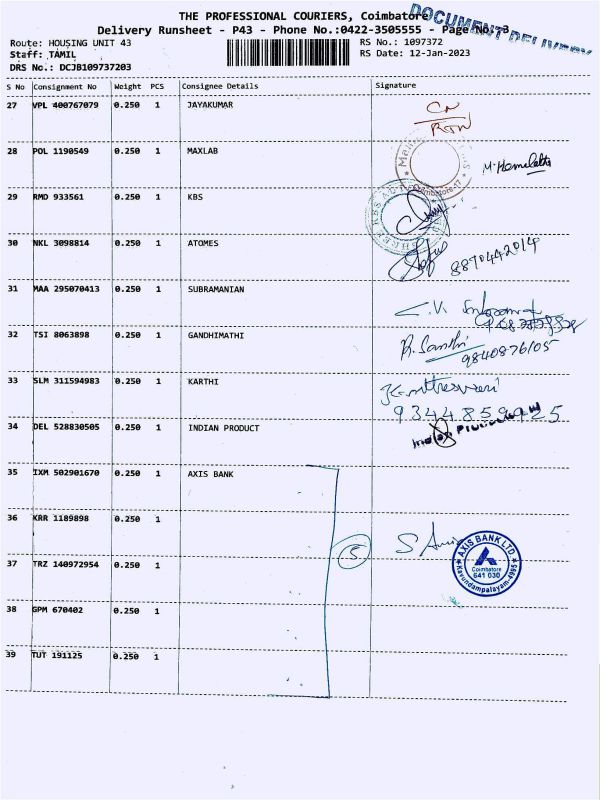 THE PROFESSIONAL COURIERS, Coimbatore
DOCUMENT DELIVERY
Delivery Runsheet - P43 - Phone No.:0422-3505555 - Page No.:3
Route: HOUSING UNIT 43
RS No.: 1097372
Staff: TAMIL
RS Date: 12-Jan-2023
DRS No.: DCJB109737203
S No Consignment No Weight PCS Consignee Details Signature
27 VPL 400767079 0.250 1 JAYAKUMAR
28 POL 1190549 0.250 1 MAXLAB
29 RMD 933561 0.250 1 KBS
30 NKL 3098814 0.250 1 ATOMES
8870442014
31 MAA 295070413 0.250 1 SUBRAMANIAN
32 TSI 8063898 0.250 1 GANDHIMATHI
9840876105
33 SLM 311594983 0.250 1 KARTHI
9344859925
34 DEL 528830505 0.250 1 INDIAN PRODUCT
35 IXM 502901670 0.250 1 AXIS BANK
36 KRR 1189898 0.250 1
5
AXIS BANK LTD
Coimbatore
641 030
Kavundampalayam-4995
37 TRZ 140972954 0.250 1
38 GPM 670402 0.250 1
39 TUT 191125 0.250 1